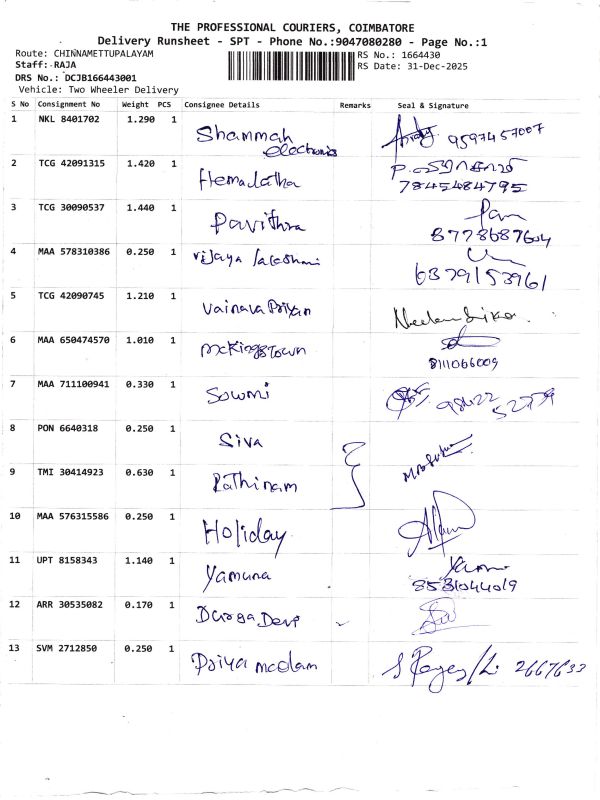 THE PROFESSIONAL COURIERS, COIMBATORE
Delivery Runsheet - SPT - Phone No.:9047080280 - Page No.:1
Route: CHINNAMETTUPALAYAM
RS No.: 1664430
Staff: RAJA
RS Date: 31-Dec-2025
DRS No.: DCJB166443001
Vehicle: Two Wheeler Delivery
S No Consignment No Weight PCS Consignee Details Remarks Seal & Signature
1 NKL 8401702 1.290 1 Shammah electronis 9597457007
2 TCG 42091315 1.420 1 Hemalatha 7845484795
3 TCG 30090537 1.440 1 Pavithra 8778687604
4 MAA 578310386 0.250 1 vijaya lakshmi 6379153961
5 TCG 42090745 1.210 1
6 MAA 650474570 1.010 1 mcKingstown 8111066009
7 MAA 711100941 0.330 1 Sowmi
8 PON 6640318 0.250 1 Siva
9 TMI 30414923 0.630 1 Rathinam
10 MAA 576315586 0.250 1 Holiday
11 UPT 8158343 1.140 1 Yamuna 8531044019
12 ARR 30535082 0.170 1 Durga Devi
13 SVM 2712850 0.250 1 Priya medam 2667633